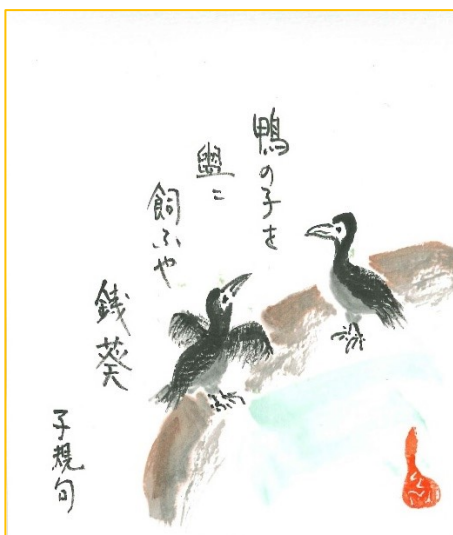 鴨の子を
盥に
飼ふや
銭葵
子規句